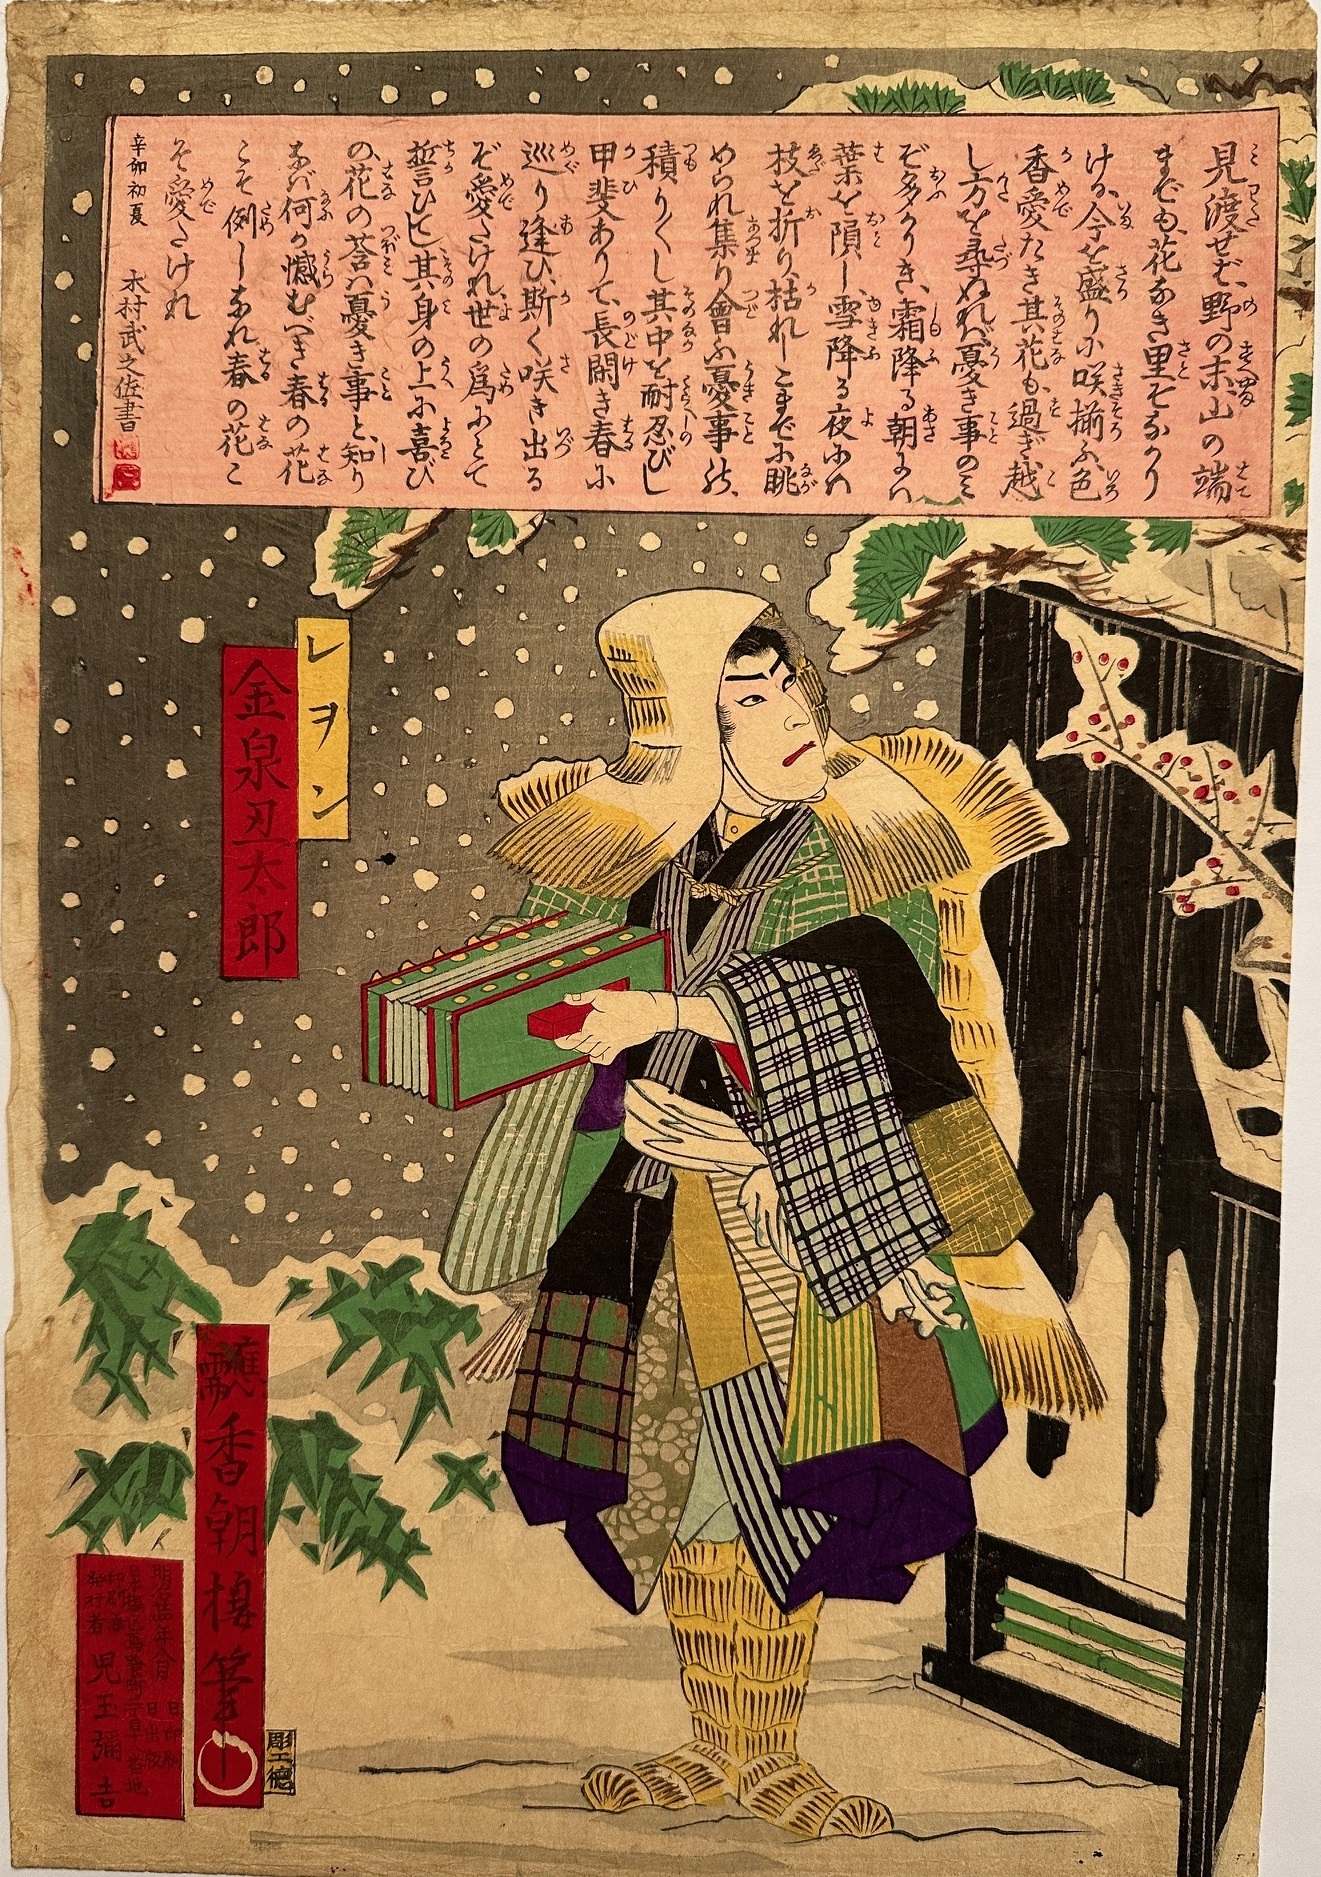 見渡せば、野の末山の端
までも、花なき里ぞなかり
ける今を盛りに咲揃ふ、色
香愛たき其花も、過ぎ越
し方を尋ぬれば憂き事のミ
ぞ多かりき、霜降る朝にハ
葉を隕し、雪降る夜にハ
枝を折り、枯れしこまでに眺
められ集り會ふ憂事の、
積り〳〵し其中を耐忍びし
甲斐ありて、長閑き春に
巡り逢ひ、斯く咲き出る
ぞ愛たけれ世の為にとて
誓ひし其身の上に喜び
の花の莟ハ憂き事と、知り
なば何か憾むべき春の花
こそ例しなれ春の花こ
そ愛たけれ
辛卯初夏 木村武之佐書
レヲン
金泉丑太郎
應需 香朝楼筆
彫工徳
印刷兼
発行者 児玉彌吉